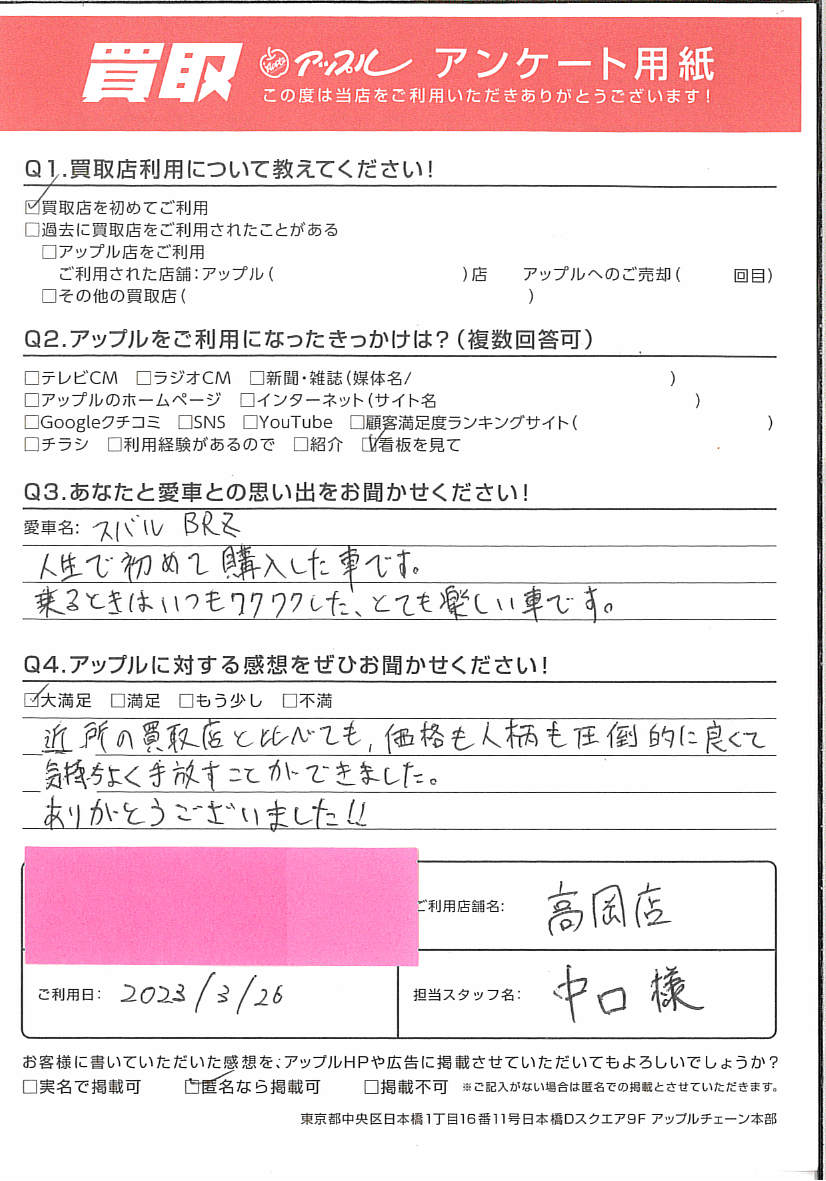 買取 アップル アンケート用紙
この度は当店をご利用いただきありがとうございます!
Q1.買取店利用について教えてください!
☑買取店を初めてご利用
□過去に買取店をご利用されたことがある
□アップル店をご利用
ご利用された店舗:アップル( )店 アップルへのご売却( 回目)
□その他の買取店( )
Q2.アップルをご利用になったきっかけは?(複数回答可)
□テレビCM □ラジオCM □新聞・雑誌(媒体名/ )
□アップルのホームページ □インターネット(サイト名 )
□Googleクチコミ □SNS □YouTube □顧客満足度ランキングサイト( )
□チラシ □利用経験があるので □紹介 ☑看板を見て
Q3.あなたと愛車との思い出をお聞かせください!
愛車名: スバル BRZ
人生で初めて購入した車です。
乗るときはいつもワクワクした、とても楽しい車です。
Q4.アップルに対する感想をぜひお聞かせください!
☑大満足 □満足 □もう少し □不満
近所の買取店と比べても,価格も人柄も圧倒的に良くて
気持ちよく手放すことができました。
ありがとうございました!!
ご利用店舗名: 高岡店
ご利用日: 2023/3/26 担当スタッフ名: 中口様
お客様に書いていただいた感想を、アップルHPや広告に掲載させていただいてもよろしいでしょうか?
□実名で掲載可 ☑匿名なら掲載可 □掲載不可 ※ご記入がない場合は匿名での掲載とさせていただきます。
東京都中央区日本橋1丁目16番11号日本橋Dスクエア9F アップルチェーン本部